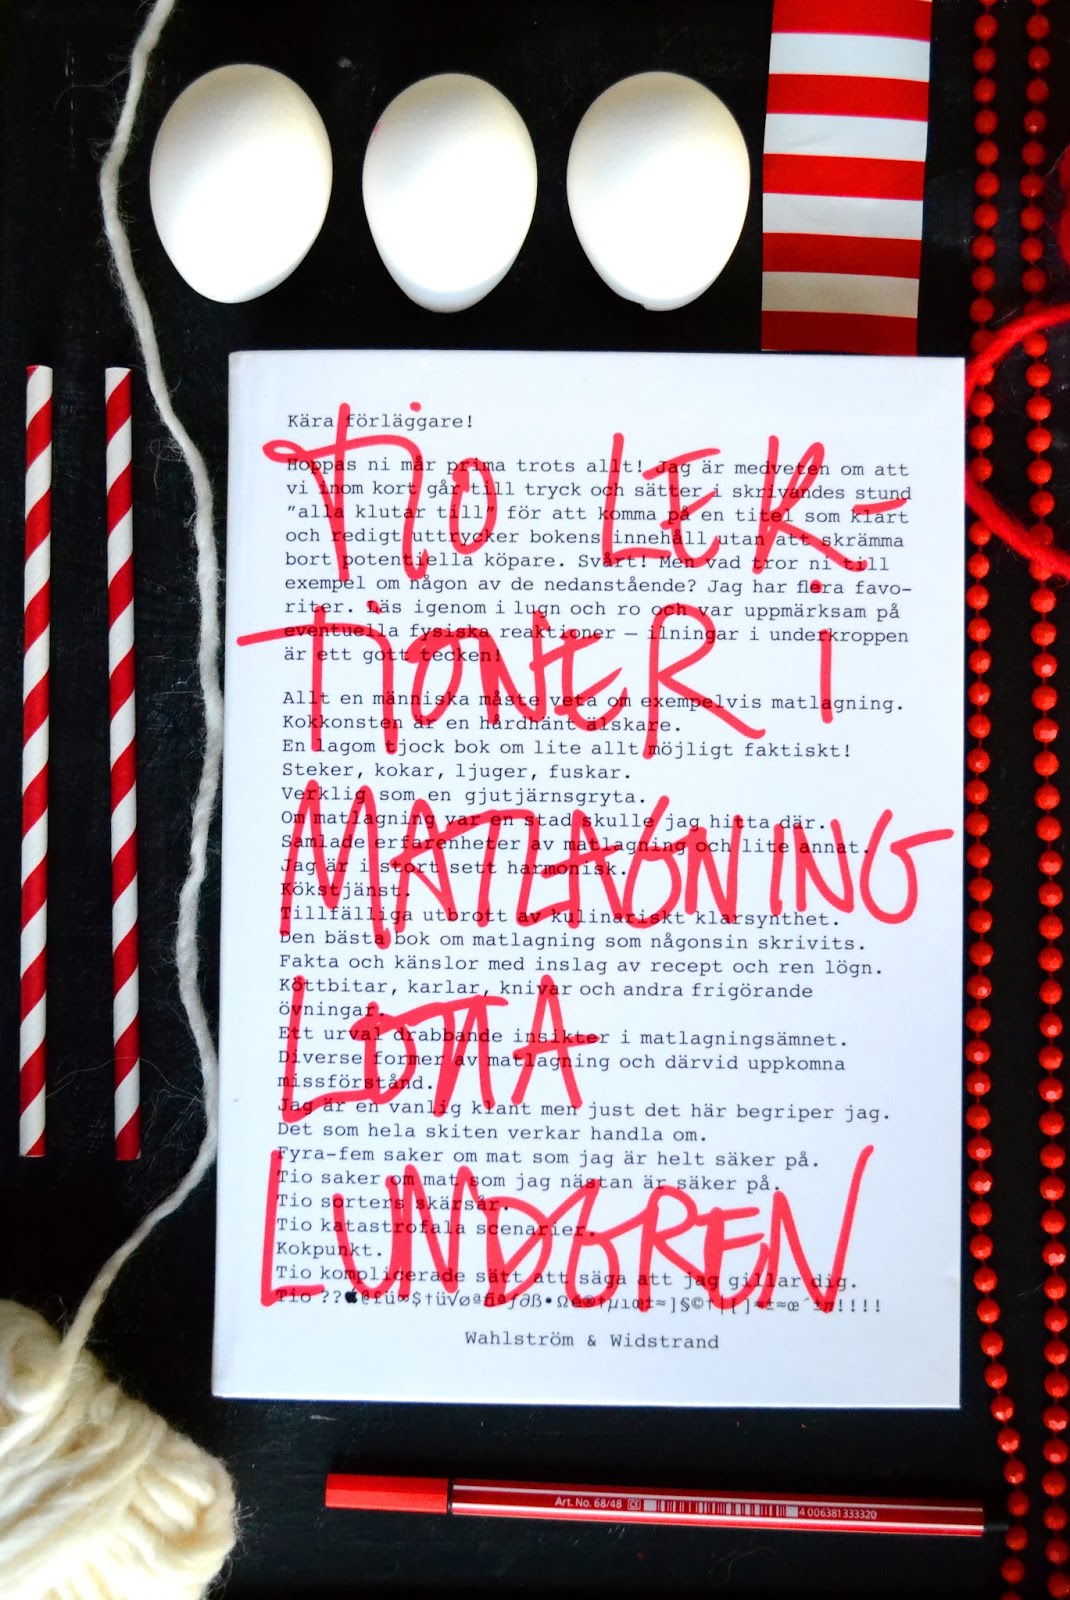 Kära förläggare!
Hoppas ni mår prima trots allt! Jag är medveten om att
vi inom kort går till tryck och sätter i skrivandes stund
"alla klutar till" för att komma på en titel som klart
och redigt uttrycker bokens innehåll utan att skrämma
bort potentiella köpare. Svårt! Men vad tror ni till
exempel om någon av de nedanstående? Jag har flera favo-
riter. Läs igenom i lugn och ro och var uppmärksam på
eventuella fysiska reaktioner – ilningar i underkroppen
är ett gott tecken!
Allt en människa måste veta om exempelvis matlagning.
Kokkonsten är en hårdhänt älskare.
En lagom tjock bok om lite allt möjligt faktiskt!
Steker, kokar, ljuger, fuskar.
Verklig som en gjutjärnsgryta.
Om matlagning var en stad skulle jag hitta där.
Samlade erfarenheter av matlagning och lite annat.
Jag är i stort sett harmonisk.
Kökstjänst.
Tillfälliga utbrott av kulinariskt klarsynthet.
Den bästa bok om matlagning som någonsin skrivits.
Fakta och känslor med inslag av recept och ren lögn.
Köttbitar, karlar, knivar och andra frigörande
övningar.
Ett urval drabbande insikter i matlagningsämnet.
Diverse former av matlagning och därvid uppkomna
missförstånd.
Jag är en vanlig klant men just det här begriper jag.
Det som hela skiten verkar handla om.
Fyra-fem saker om mat som jag är helt säker på.
Tio saker om mat som jag nästan är säker på.
Tio sorters skärsår.
Tio katastrofala scenarier.
Kokpunkt.
Tio komplicerade sätt att säga att jag gillar dig.
Tio
Wahlström & Widstrand
TIO LEK-
TIONER I
MATLAGNING
LOTTA
LUNDGREN
Art. No. 68/48 CE 4 006381333320